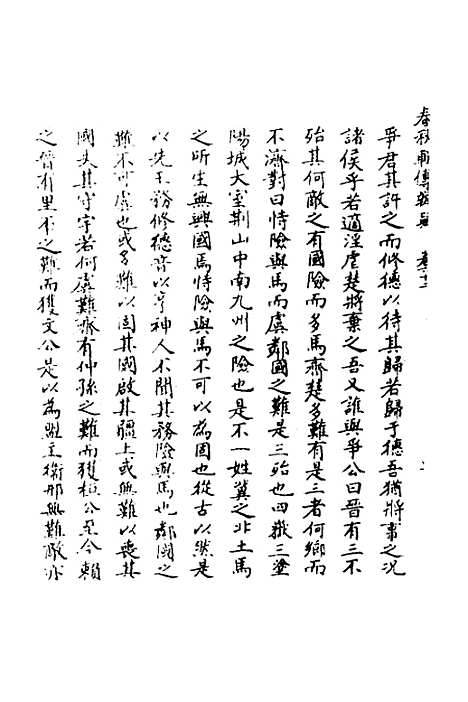 春秋前傳雜案 卷十二
爭君其許之而修德以待其歸若歸于德吾猶將事之况
諸侯乎若適淫虐楚將棄之吾又誰與爭公曰晉有三不
殆其何敵之有國險而多馬齊楚多難有是三者何鄉而
不濟對曰恃險與馬而虞鄰國之難是三殆也四嶽三塗
陽城大室荆山中南九州之險也是不一姓冀之北土馬
之所生無興國焉恃險與馬不可以為固也從古以然是
以先王務修德音以亨神人不聞其務險與馬也鄰國之
難不可虞也或多難以固其國啟其疆土或無難以喪其
國失其守宇若何虞難齊有仲孫之難而獲桓公至今賴
之晉有里丕之難而獲文公是以為盟主衛邢無難敵亦